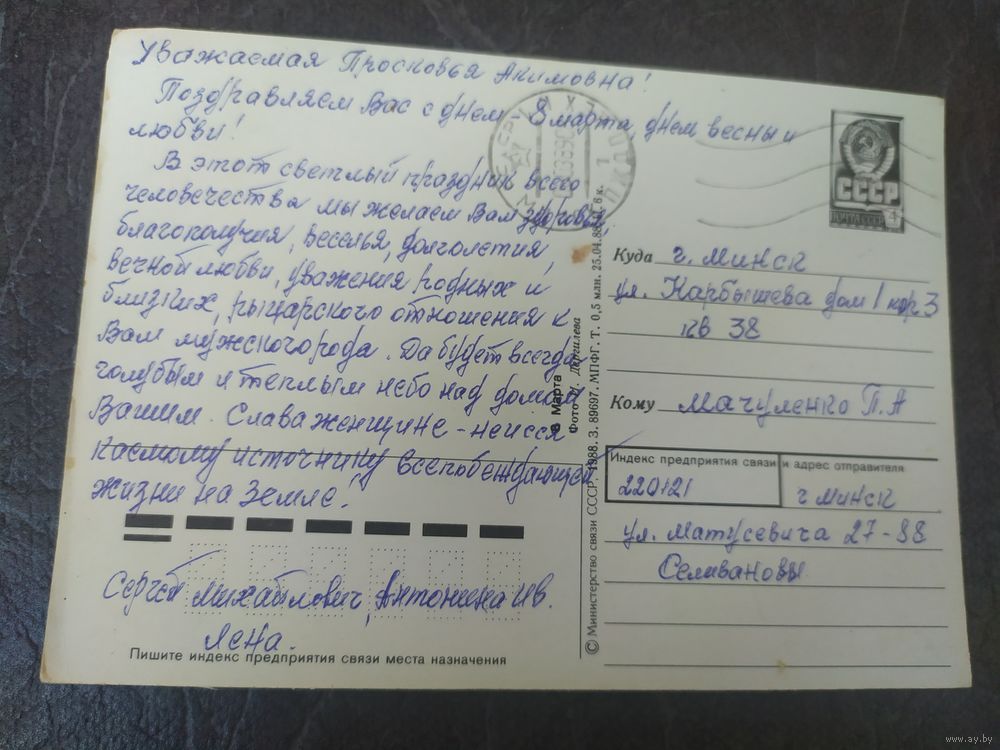 Уважаемая Просковья Акимовна!
Поздравляем Вас с днем 8 марта, днем весны и
любви!
В этот светлый праздник всего
человечества мы желаем Вам здоровья,
благополучия, веселья, долголетия,
вечной любви, уважения родных и
близких, рыцарского отношения к
Вам мужского рода. Да будет всегда
голубым и теплым небо над домом
Вашим. Слава женщине - неисся
каемому источнику всепобеждающей
жизни на Земле.
Сергей Михайлович, Антонина Ив.
Лена.
Пишите индекс предприятия связи места назначения
8 Марта
Фото
© Министерство связи СССР, 1988. З. 89697. МПФГ. Т. 0,5 млн. 25.04.88. 6 к.
СССР
ПОЧТА СССР
4
Куда г. Минск
ул. Карбышева дом 1 кор 3
кв 38
Кому Мачуленко П.А
Индекс предприятия связи и адрес отправителя
220121 г Минск
ул. Матусевича 27-88
Селивановы
www.ay.by